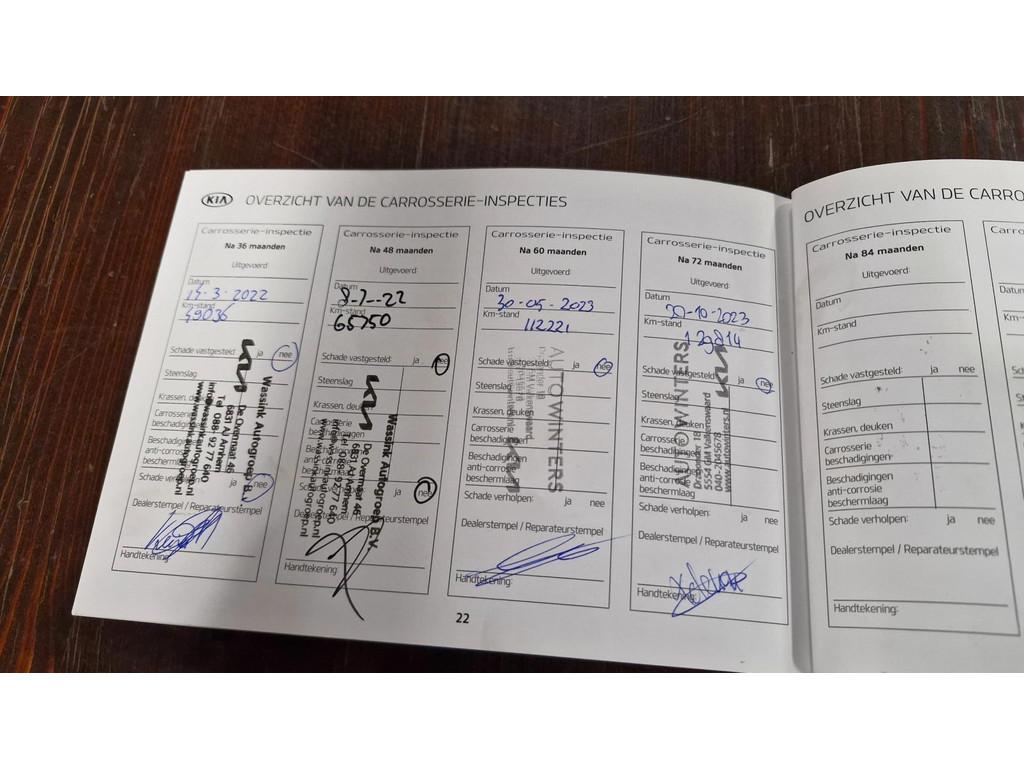 KIA OVERZICHT VAN DE CARROSSERIE-INSPECTIES
Carrosserie-inspectie
Na 36 maanden
Uitgevoerd:
Datum
14-3-2022
Km-stand
49036
Schade vastgesteld: ja nee
Steenslag
Krassen, deuken
Carrosserie
beschadigingen
Beschadigingen
anti-corrosie
beschermlaag
ja nee
Dealerstempel / Reparateurstempel
Handtekening:
Wassink Autogroep B.V.
De Overmaat 46
6831 AJ Arnhem
Tel. 088- 92 77 640
info@wassinkautogroep.nl
www.wassinkautogroep.nl
Carrosserie-inspectie
Na 48 maanden
Uitgevoerd:
Datum
Km-stand
65750
Schade vastgesteld: ja nee
Steenslag
Krassen, deuken
Carrosserie
beschadigingen
Beschadigingen
anti-corrosie
beschermlaag
ja nee
Dealerstempel / Reparateurstempel
Handtekening:
Wassink Autogroep B.V.
De Overmaat 46
6831 AJ Arnhem
Tel. 088- 92 77 640
info@wassinkautogroep.nl
www.wassinkautogroep.nl
Carrosserie-inspectie
Na 60 maanden
Uitgevoerd:
Datum
30-05-2023
Km-stand
112221
Schade vastgesteld: ja nee
Steenslag
Krassen, deuken
Carrosserie
beschadigingen
Beschadigingen
anti-corrosie
beschermlaag
Schade verholpen: ja nee
Dealerstempel / Reparateurstempel
Handtekening:
AUTOWINTERS
Carrosserie-inspectie
Na 72 maanden
Uitgevoerd:
Datum
-10-2023
Km-stand
Schade vastgesteld: ja nee
Steenslag
Krassen, deuken
Carrosserie
beschadigingen
Beschadigingen
anti-corrosie
beschermlaag
Schade verholpen: ja nee
Dealerstempel / Reparateurstempel
Handtekening:
AUTOWINTERS
5554 GM Valkenswaard
040-2045678
www.autowinters.nl
22
OVERZICHT VAN DE CARRO
Carrosserie-inspectie
Na 84 maanden
Uitgevoerd:
Datum
Km-stand
Schade vastgesteld: ja nee
Steenslag
Krassen, deuken
Carrosserie
beschadigingen
Beschadigingen
anti-corrosie
beschermlaag
Schade verholpen: ja nee
Dealerstempel / Reparateurstempel
Handtekening:
Carro
Datum
Km-stand
Schade va
Steenslag
Krassen, d
Carrosserie
beschadigi
Beschadigi
anti-corros
bescherml
Schade ver
Dealerstem
Handteken